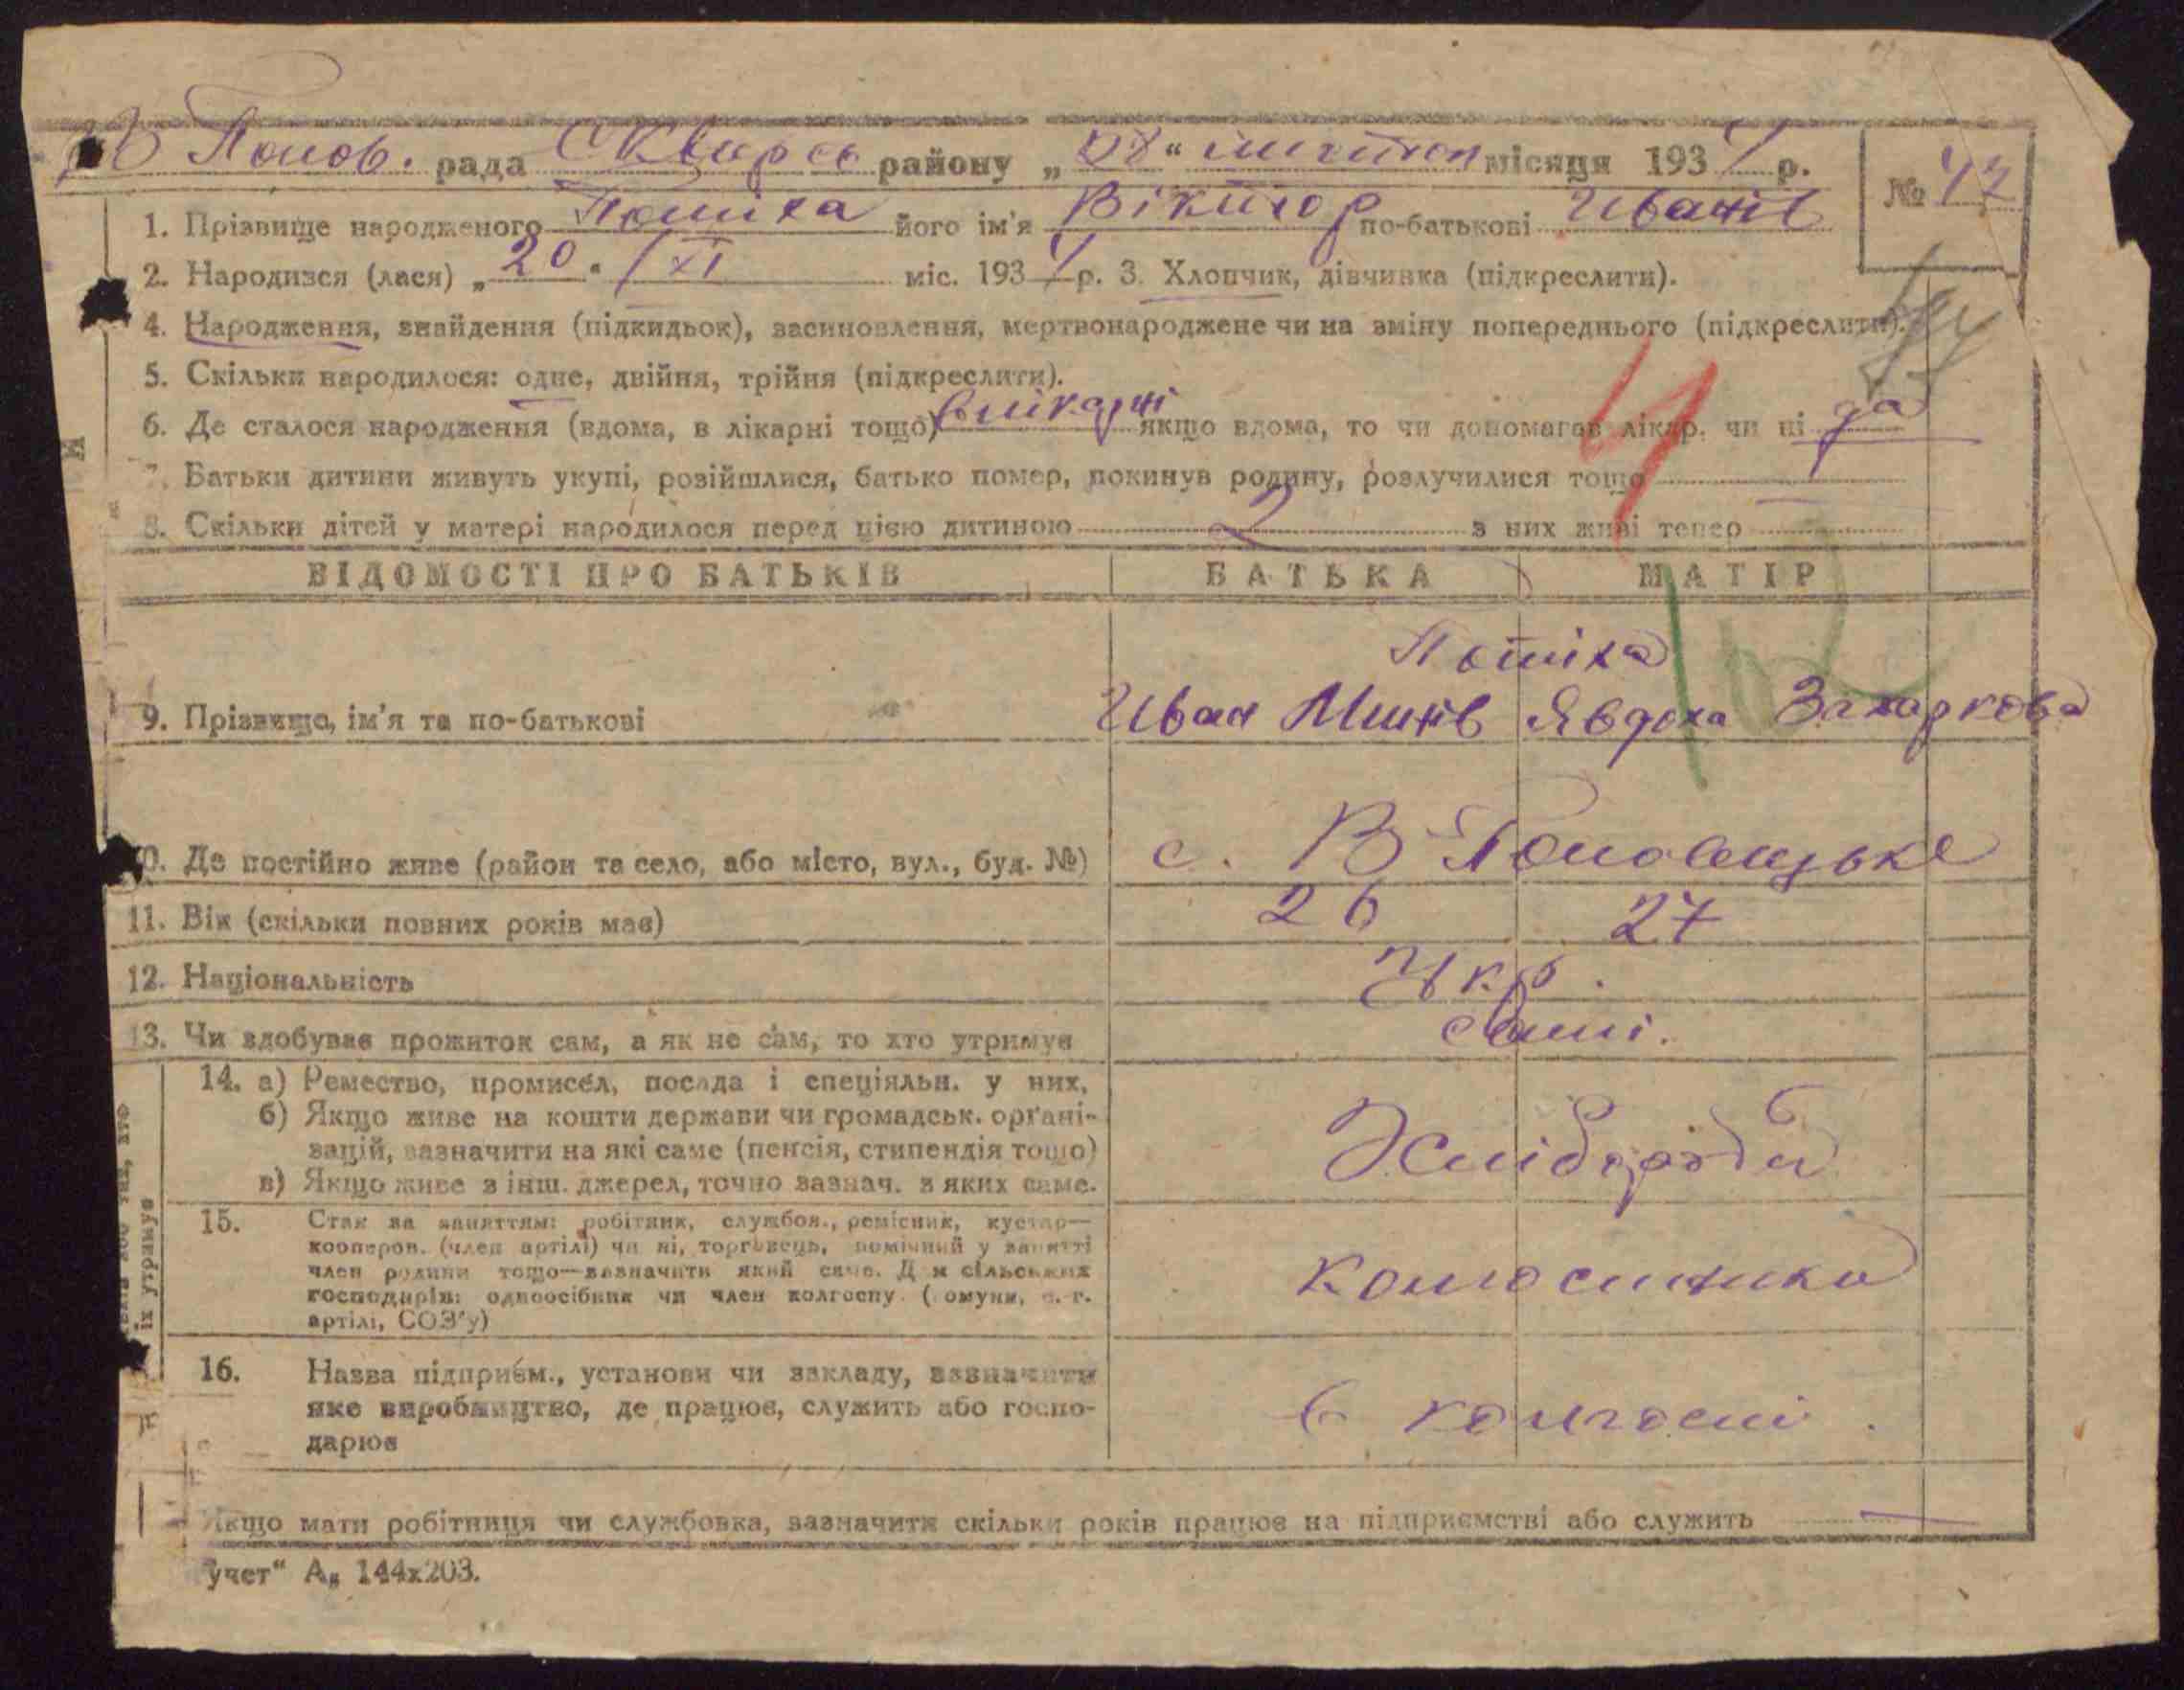 В Полов. рада Сквирсь району „ “ місяця 193 р. № 47
1. Прізвище народженого Потіха його ім'я Віктор по-батькові Иванів
2. Народився (лася) „20“ / XI міс. 193 р. 3. Хлопчик, дівчинка (підкреслити).
4. Народження, знайдення (підкидьок), засиновлення, мертвонароджене чи на зміну попереднього (підкреслити).
5. Скільки народилося: одне, двійня, трійня (підкреслити).
6. Де сталося народження (вдома, в лікарні тощо) влікарні якщо вдома, то чи допомагав лікар, чи ні да
7. Батьки дитини живуть укупі, розійшлися, батько помер, покинув родину, розлучилися тощо —
8. Скільки дітей у матері народилося перед цією дитиною 2 з них живі тепер
ВІДОМОСТІ ПРО БАТЬКІВ БАТЬКА МАТІР
Потіха
9. Прізвище, ім'я та по-батькові Иван Явдоха Захаркова
10. Де постійно живе (район та село, або місто, вул., буд. №) с. В Половецьке
11. Вік (скільки повних років має) 26 27
12. Національність Укр.
13. Чи здобуває прожиток сам, а як не сам, то хто утримує самі.
14. а) Ремество, промисел, посада і спеціяльн. у них,
б) Якщо живе на кошти держави чи громадськ. органі-
зацій, зазначити на які саме (пенсія, стипендія тощо)
в) Якщо живе з інш. джерел, точно зазнач. з яких саме.
Хлібороби
15. Стан за заняттям: робітник, службов., ремісник, кустар—
кооперов. (член артілі) чи ні, торговець, помічний у занятті
член родини тощо—зазначити який саме. Для сільських
господарів: одноосібник чи член колгоспу (комуни, с.-г.
артілі, СОЗ'у)
колгоспники
16. Назва підприєм., установи чи закладу, зазначити
яке виробництво, де працює, служить або госпо-
дарює
в колгоспі
їх утримує
Якщо мати робітниця чи службовка, зазначити скільки років працює на підприємстві або служить —
учет“ А₅ 144х203.